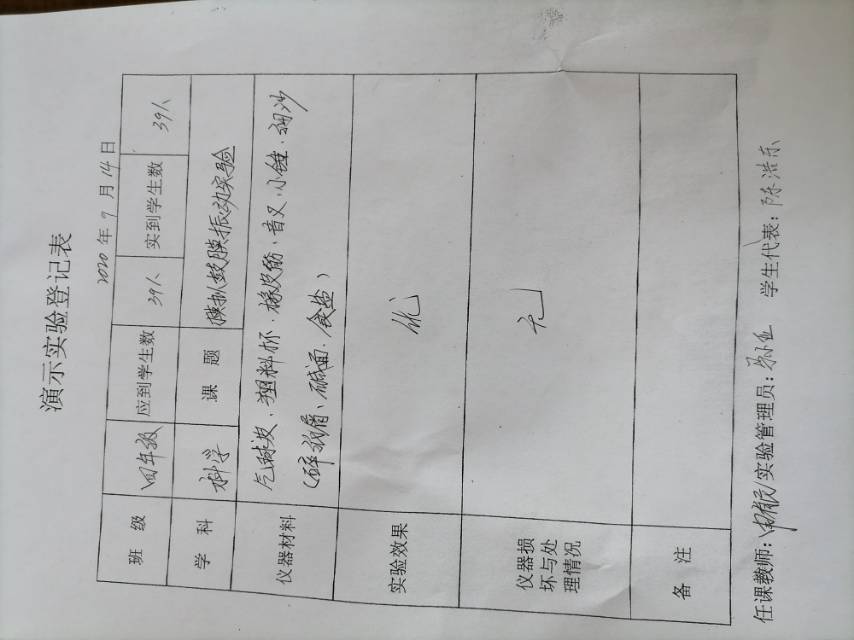 演示实验登记表
2020 年 9 月 14 日
班 级 四年级 应到学生数 39人 实到学生数 39人
学 科 科学 课 题 模拟鼓膜振动实验
仪器材料 气球皮、塑料杯、橡皮筋、音叉、小锤、细沙
(碎纸屑、碱面、食盐)
实验效果 优
仪器损
坏与处
理情况
无
备 注
任课教师: /实验管理员: 学生代表: 陈浩东